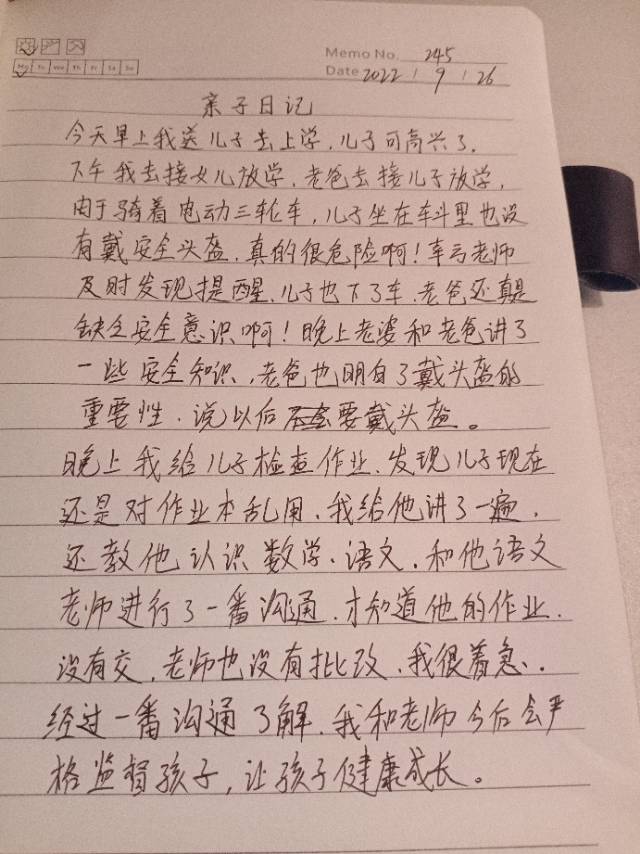 Memo No. 245
Mo Tu We Th Fr Sa Su
Date 2022 / 9 / 26
亲子日记
今天早上我送儿子去上学，儿子可高兴了。
下午我去接女儿放学，老爸去接儿子放学，
由于骑着电动三轮车，儿子坐在车斗里也没
有戴安全头盔，真的很危险啊！辛亏老师
及时发现提醒，儿子也下了车，老爸还真是
缺乏安全意识啊！晚上老婆和老爸讲了
一些安全知识，老爸也明白了戴头盔的
重要性，说以后要戴头盔。
晚上我给儿子检查作业，发现儿子现在
还是对作业本乱用，我给他讲了一遍，
还教他认识数学、语文，和他语文
老师进行了一番沟通，才知道他的作业，
没有交，老师也没有批改，我很着急，
经过一番沟通了解，我和老师今后会严
格监督孩子，让孩子健康成长。